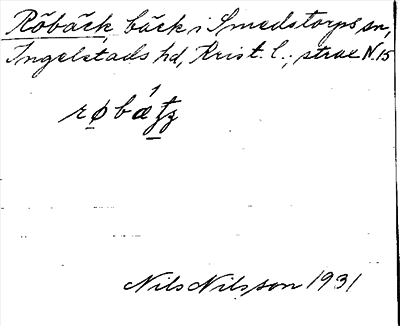 Röbäck, bäck i Smedstorps sn,
Ingelstads hd, Krist. l.; strax N. 15
Nils Nilsson 1931